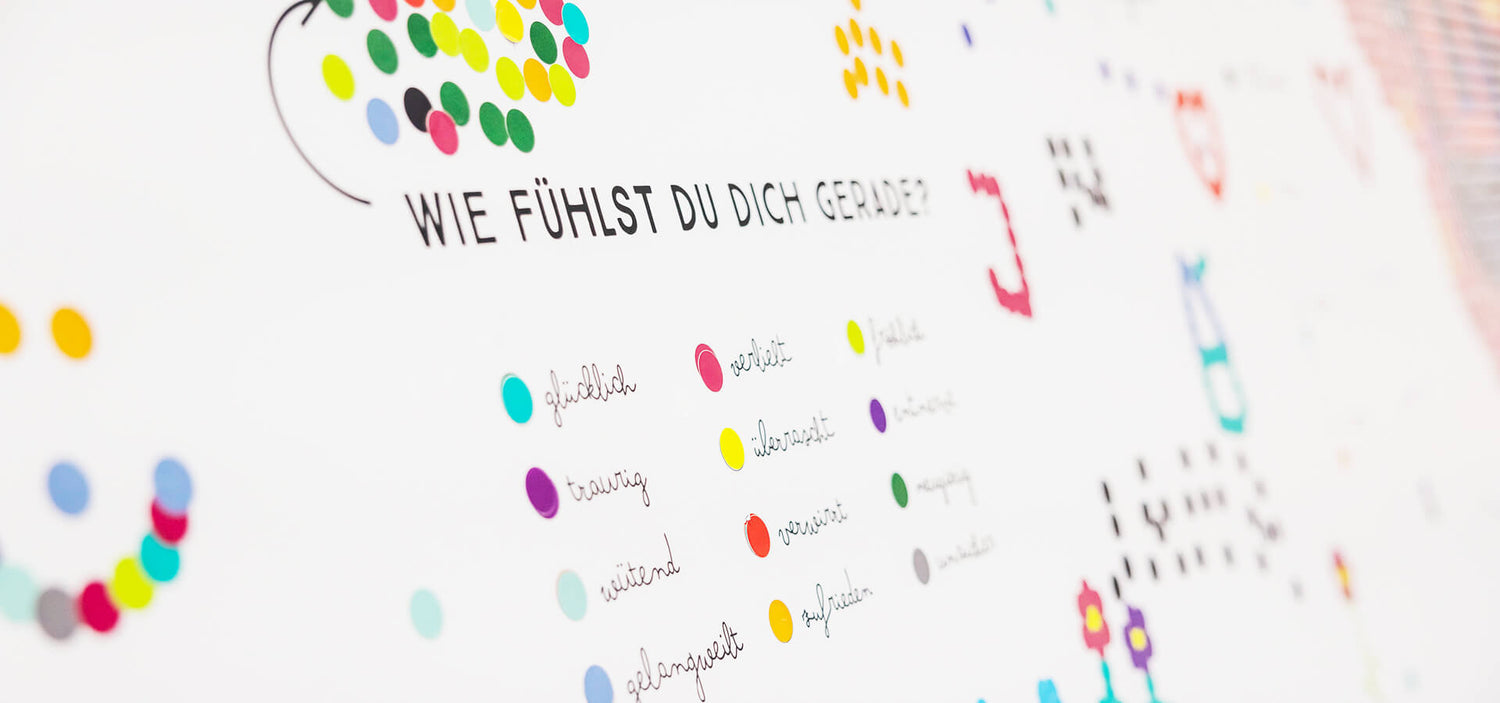 WIE FÜHLST DU DICH GERADE?
glücklich
traurig
wütend
gelangweilt
verliebt
überrascht
verwirrt
zufrieden
fröhlich
neugierig